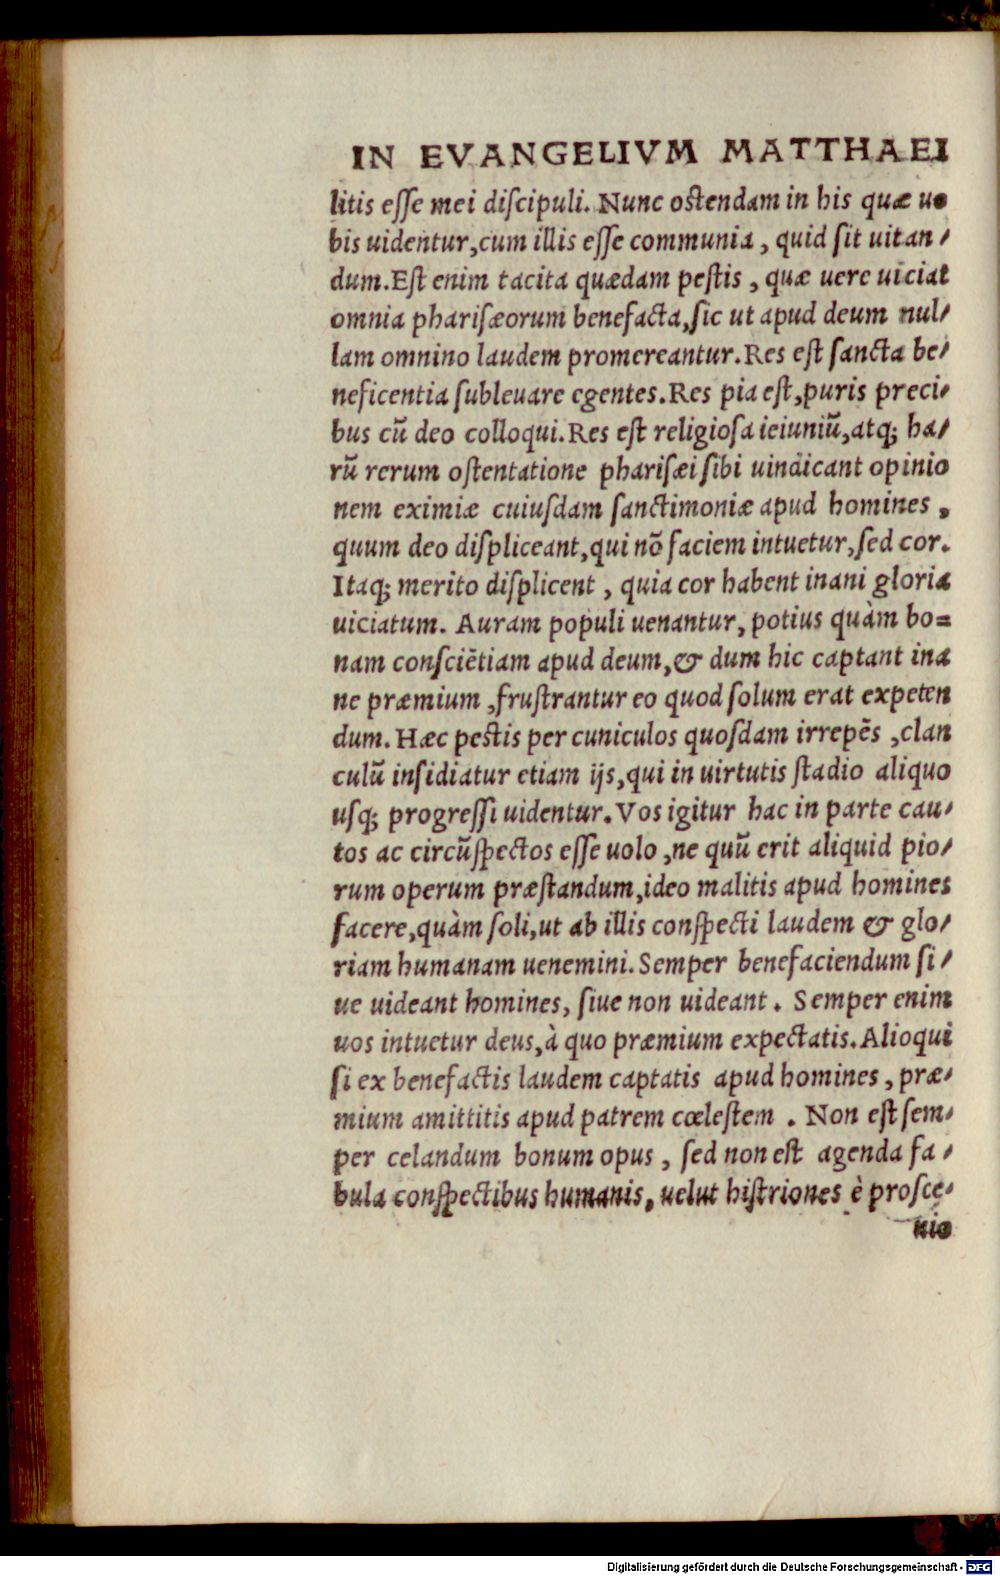 IN EVANGELIVM MATTHAEI
litis eſſe mei diſcipuli. Nunc oſtendam in his quæ uo
bis uidentur, cum illis eſſe communia, quid ſit uitan/
dum. Eſt enim tacita quædam peſtis, quæ uere uiciat
omnia phariſæorum benefacta, ſic ut apud deum nul/
lam omnino laudem promereantur. Res eſt ſancta be/
neficentia ſubleuare egentes. Res pia eſt, puris preci/
bus cū deo colloqui. Res eſt religioſa ieiuniū, atq; ha/
rū rerum oſtentatione phariſæi ſibi uindicant opinio
nem eximiæ cuiuſdam ſanctimoniæ apud homines,
quum deo diſpliceant, qui nō faciem intuetur, ſed cor.
Itaq; merito diſplicent, quia cor habent inani gloria
uiciatum. Auram populi uenantur, potius quàm bo=
nam conſciētiam apud deum, & dum hic captant ina
ne præmium, fruſtrantur eo quod ſolum erat expeten
dum. Hæc peſtis per cuniculos quoſdam irrepēs, clan
culū inſidiatur etiam ijs, qui in uirtutis ſtadio aliquo
uſq; progreſſi uidentur. Vos igitur hac in parte cau/
tos ac circūſpectos eſſe uolo, ne quū erit aliquid pio/
rum operum præſtandum, ideo malitis apud homines
facere, quàm ſoli, ut ab illis conſpecti laudem & glo/
riam humanam uenemini. Semper benefaciendum ſi/
ue uideant homines, ſiue non uideant. Semper enim
uos intuetur deus, à quo præmium expectatis. Alioqui
ſi ex benefactis laudem captatis apud homines, præ/
mium amittitis apud patrem cœleſtem. Non eſt ſem/
per celandum bonum opus, ſed non eſt agenda fa/
bula conſpectibus humanis, uelut hiſtriones è proſce/
nio
Digitalisierung gefördert durch die Deutsche Forschungsgemeinschaft - DFG